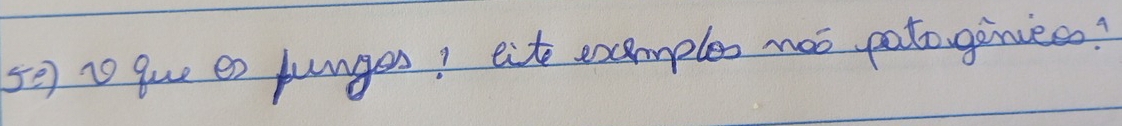 5º) O que os fungos? cite exemplos não patogênicos?